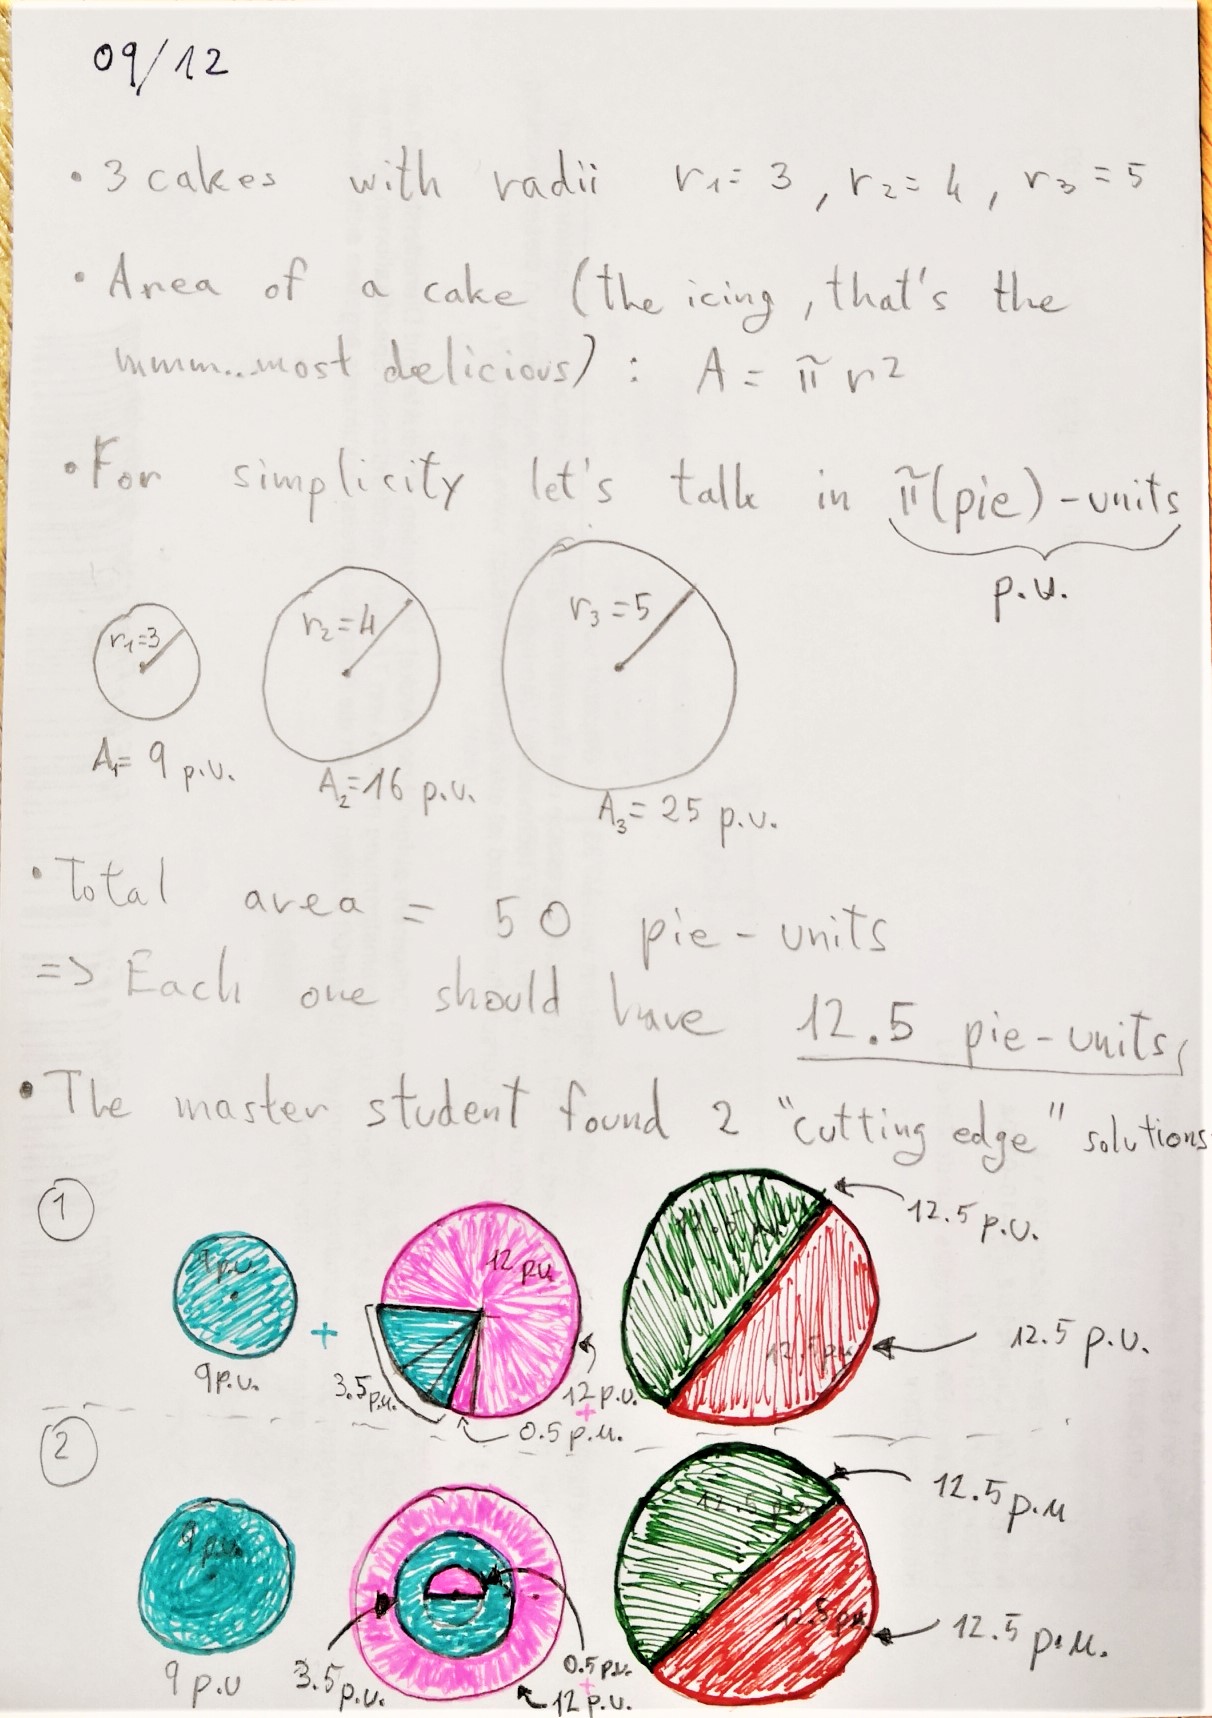 09/12
• 3 cakes with radii r₁= 3, r₂= 4, r₃ = 5
• Area of a cake (the icing, that's the
mmm...most delicious) : A = π r²
• For simplicity let's talk in π(pie)-units
p.u.
r₁=3
r₂=4
r₃=5
A₁= 9 p.u.
A₂=16 p.u.
A₃= 25 p.u.
• Total area = 50 pie-units
=> Each one should have 12.5 pie-units,
• The master student found 2 "cutting edge" solutions
①
9p.u.
9p.u.
+
12 p.u.
3.5p.u.
12 p.u.
+
0.5 p.u.
12.5 p.u.
12.5 p.u.
12.5 p.u.
②
9 p.u.
9 p.u
3.5 p.u.
0.5 p.u.
+
12 p.u.
12.5 p.u.
12.5 p.u
12.5 p.u
12.5 p.u.